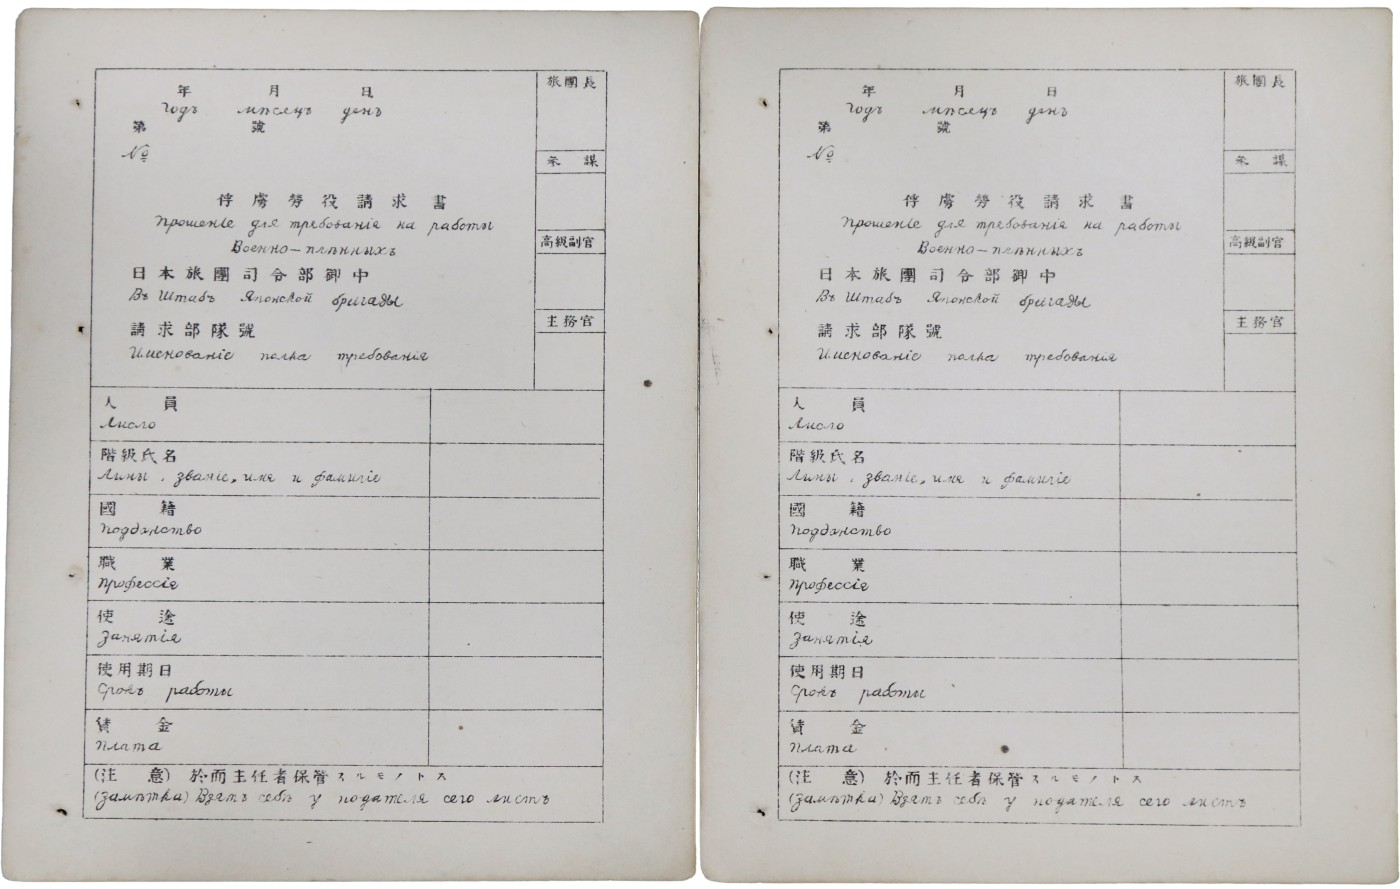 年 月 日
Годъ мѣсяцъ день
第 號
№
俘虜勞役請求書
Прошеніе для требованія на работы
Военно-плѣнныхъ
日本旅團司令部御中
Въ Штабъ Японской бригады
請求部隊號
Именованіе полка требованія
旅團長
參謀
高級副官
主務官
人員
Число
階級氏名
Чины, званіе, имя и фамиліе
國籍
Подданство
職業
Профессія
使途
Занятія
使用期日
Срокъ работы
賃金
Плата
(注意) 於而主任者保管スルモノトス
(Замѣтка) Взять себѣ у подателя сего листъ
年 月 日
Годъ мѣсяцъ день
第 號
№
俘虜勞役請求書
Прошеніе для требованія на работы
Военно-плѣнныхъ
日本旅團司令部御中
Въ Штабъ Японской бригады
請求部隊號
Именованіе полка требованія
旅團長
參謀
高級副官
主務官
人員
Число
階級氏名
Чины, званіе, имя и фамиліе
國籍
Подданство
職業
Профессія
使途
Занятія
使用期日
Срокъ работы
賃金
Плата
(注意) 於而主任者保管スルモノトス
(Замѣтка) Взять себѣ у подателя сего листъ